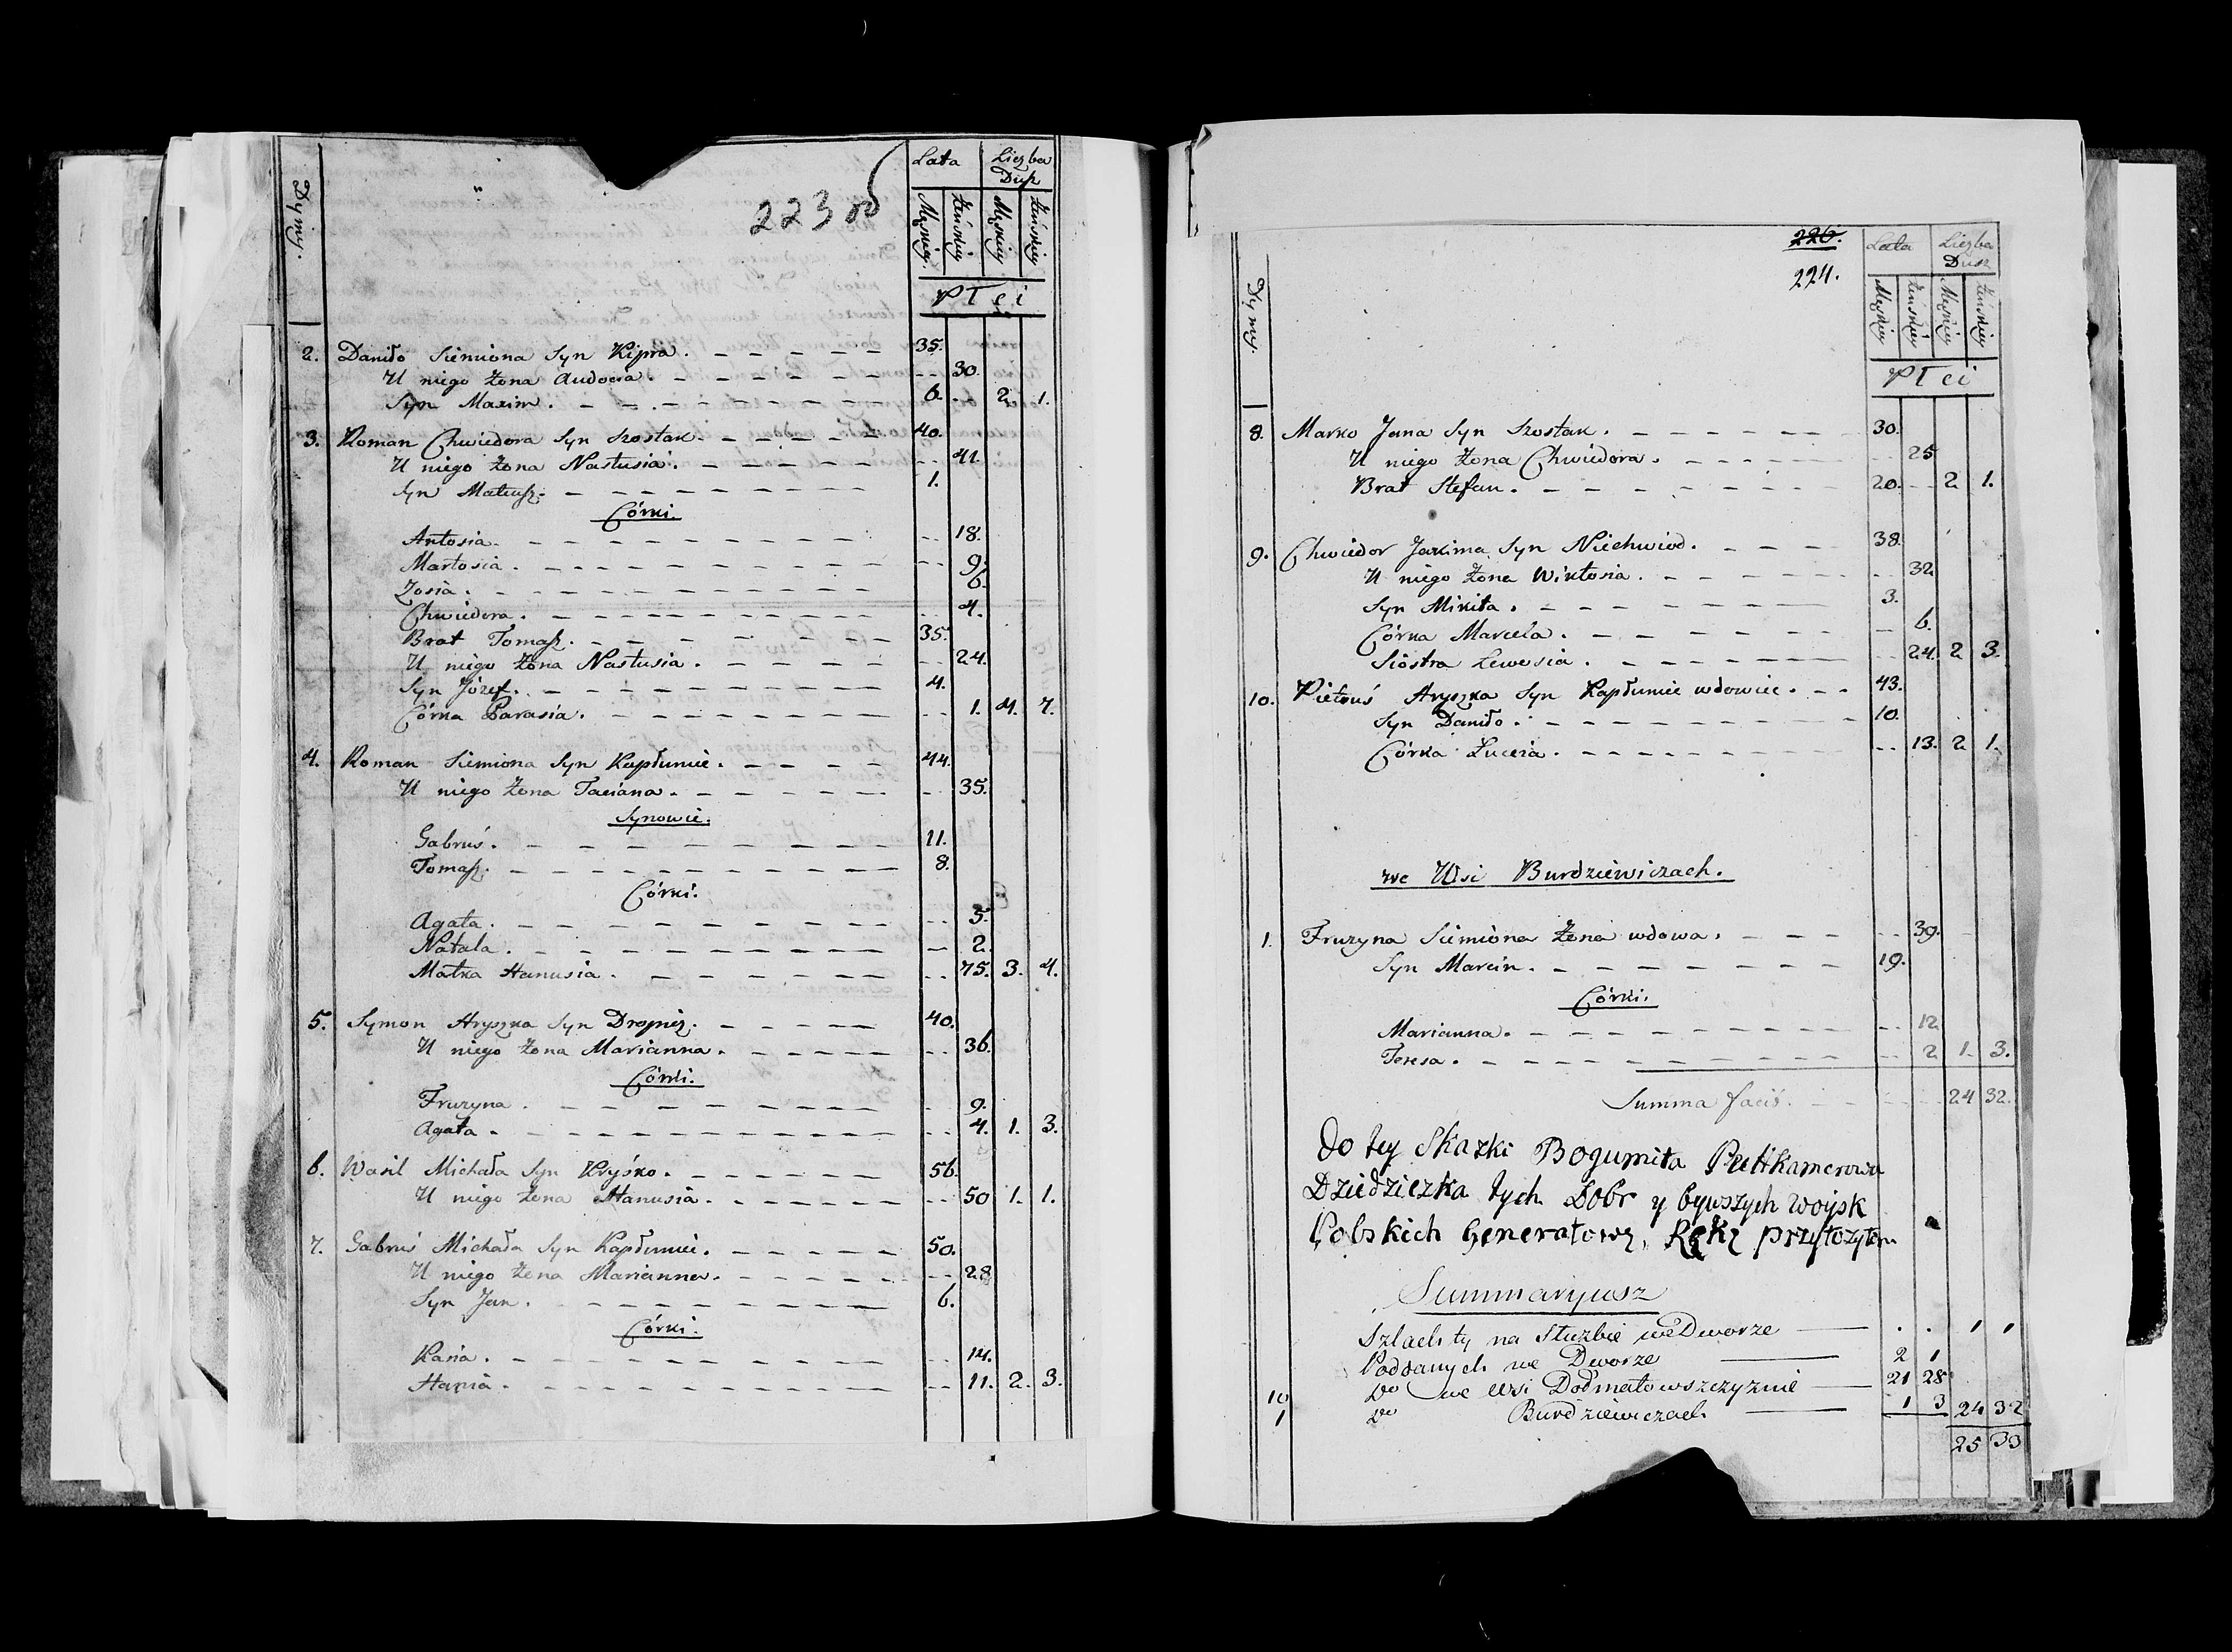 223 об
Dymy.
Lata
Liczba Dusz
Męskiey.
Żeńskiey.
Męskiey
Żeńskiey
Płci
2. Daniło Siemiona Syn Kipra. 35.
U niego Żona Audocia. 30.
Syn Maxim. 6. 2. 1.
3. Roman Chwiedora Syn Szostak. 40.
U niego Żona Nastusia. 41.
Syn Mateusz. 1.
Córki.
Antosia. 18.
Martosia. 9.
Zosia. 6.
Chwiedora. 4.
Brat Tomasz. 35.
U niego Żona Nastusia. 24.
Syn Józef. 4.
Córka Parasia. 1. 4. 7.
4. Roman Siemiona Syn Kapłunie. 44.
U niego Żona Taciana. 35.
Synowie.
Gabruś. 11.
Tomasz. 8.
Córki.
Agata. 5.
Natala. 2.
Matka Hanusia. 75. 3. 4.
5. Symon Hryszka Syn 40.
U niego Żona Marianna. 36.
Córki.
Fruzyna. 9.
Agata. 4. 1. 3.
6. Wasil Michała Syn Kryśko. 56.
U niego Żona Hanusia. 50 1. 1.
7. Gabruś Michała Syn Kapłunie. 50.
U niego Żona Marianna. 28
Syn Jan. 6.
Córki.
Kasia. 14.
Hapia. 11. 2. 3.
226.
224.
Dymy.
Lata
Liczba Dusz
Męskiey
Żeńskiey
Męskiey
Żeńskiey
Płci
8. Marko Jana Syn Szostak. 30.
U niego Żona Chwiedora. 25
Brat Stefan. 20. 2 1.
9. Chwiedor Jakima Syn Niechwied. 38.
U niego Żona Wiktosia. 32
Syn Mikita. 3.
Córka Marcela. 6.
Siostra Lewosia. 24. 2 3.
10. Pietruś Hryszka Syn Kapłunie wdowiec. 43.
Syn Daniło. 10.
Córka Łuceia. 13. 2 1.
we Wsi Burdziewiczach.
1. Fruzyna Siemiona Żona wdowa. 39.
Syn Marcin. 19.
Córki.
Marianna. 12
Teresa. 2 1. 3.
Summa facit. 24 32.
Do tey Skazki Bogumiła Puttkamerowa
Dziedziczka tych Dobr y bywszych woysk
Polskich Generałowa, Rękę przyłożyłam
Summaryusz
Szlachty na Służbie we Dworze . . 1 1
Poddanych we Dworze 2 1
10 Do we wsi Dołmatowszczyznie 21 28
1 Do Burdziewiczach 1 3 24 32
25 33